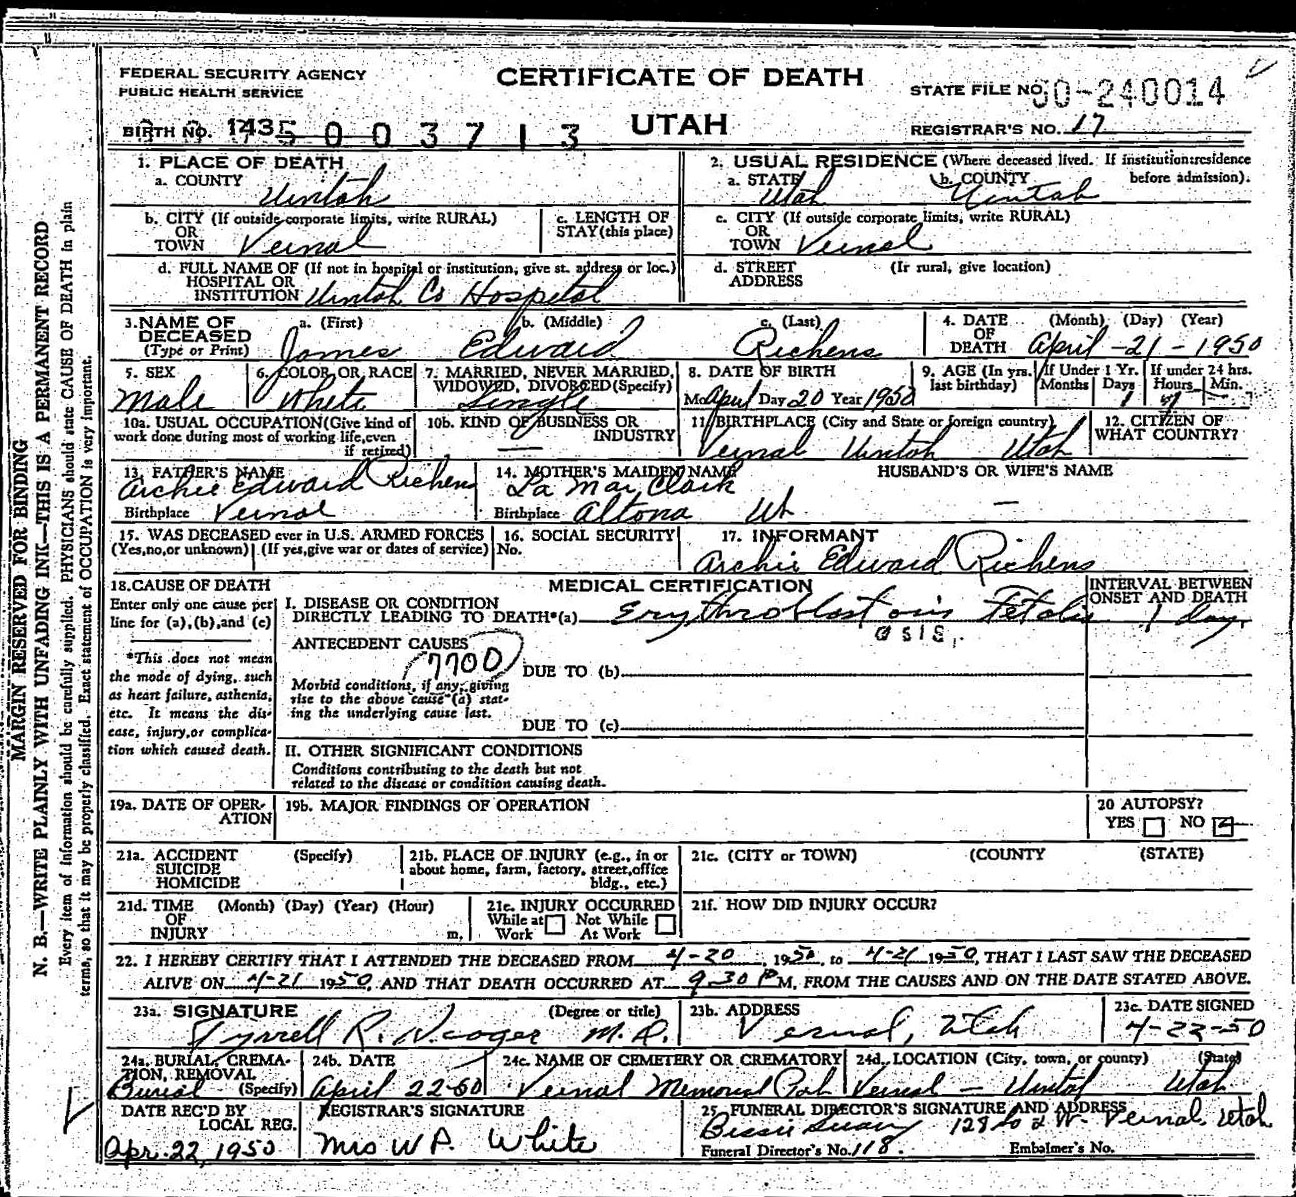 FEDERAL SECURITY AGENCY
PUBLIC HEALTH SERVICE
CERTIFICATE OF DEATH
STATE FILE NO. 50-240014
BIRTH NO. 1435 003713
UTAH
REGISTRAR'S NO. 17
1. PLACE OF DEATH
a. COUNTY Uintah
2. USUAL RESIDENCE (Where deceased lived. If institution:residence before admission).
a. STATE Utah b. COUNTY Uintah
b. CITY (If outside corporate limits, write RURAL)
OR
TOWN Vernal
c. LENGTH OF
STAY (this place)
c. CITY (If outside corporate limits, write RURAL)
OR
TOWN Vernal
d. FULL NAME OF (If not in hospital or institution, give st. address or loc.)
HOSPITAL OR
INSTITUTION Uintah Co Hospital
d. STREET (If rural, give location)
ADDRESS
3. NAME OF DECEASED (Type or Print)
a. (First) James b. (Middle) Edward c. (Last) Richens
4. DATE OF DEATH (Month) (Day) (Year)
April -21- 1950
5. SEX Male
6. COLOR OR RACE White
7. MARRIED, NEVER MARRIED, WIDOWED, DIVORCED (Specify) Single
8. DATE OF BIRTH
Mo. April Day 20 Year 1950
9. AGE (In yrs. last birthday)
If Under 1 Yr. Months Days 1
If under 24 hrs. Hours Min.
10a. USUAL OCCUPATION (Give kind of work done during most of working life, even if retired)
10b. KIND OF BUSINESS OR INDUSTRY —
11. BIRTHPLACE (City and State or foreign country)
Vernal Uintah Utah
12. CITIZEN OF WHAT COUNTRY?
13. FATHER'S NAME
Archie Edward Richens
Birthplace Vernal
14. MOTHER'S MAIDEN NAME
La Mar Clark
Birthplace Altona Ut
HUSBAND'S OR WIFE'S NAME
—
15. WAS DECEASED ever in U.S. ARMED FORCES
(Yes, no, or unknown) (If yes, give war or dates of service)
16. SOCIAL SECURITY
No.
17. INFORMANT
Archie Edward Richens
18. CAUSE OF DEATH
Enter only one cause per line for (a), (b), and (c)
*This does not mean the mode of dying, such as heart failure, asthenia, etc. It means the disease, injury, or complication which caused death.
MEDICAL CERTIFICATION
INTERVAL BETWEEN ONSET AND DEATH
I. DISEASE OR CONDITION
DIRECTLY LEADING TO DEATH*(a) Erythroblastosis Fetalis 1 day
OSIS.
ANTECEDENT CAUSES
7700
DUE TO (b)
Morbid conditions, if any, giving rise to the above cause (a) stating the underlying cause last.
DUE TO (c)
II. OTHER SIGNIFICANT CONDITIONS
Conditions contributing to the death but not related to the disease or condition causing death.
19a. DATE OF OPERATION
19b. MAJOR FINDINGS OF OPERATION
20 AUTOPSY?
YES NO
21a. ACCIDENT (Specify)
SUICIDE
HOMICIDE
21b. PLACE OF INJURY (e.g., in or about home, farm, factory, street, office bldg., etc.)
21c. (CITY or TOWN) (COUNTY) (STATE)
21d. TIME (Month) (Day) (Year) (Hour)
OF
INJURY m.
21e. INJURY OCCURRED
While at Work Not While At Work
21f. HOW DID INJURY OCCUR?
22. I HEREBY CERTIFY THAT I ATTENDED THE DECEASED FROM 4-20, 1950, to 4-21 1950, THAT I LAST SAW THE DECEASED
ALIVE ON 4-21 1950, AND THAT DEATH OCCURRED AT 9 30 P M, FROM THE CAUSES AND ON THE DATE STATED ABOVE.
23a. SIGNATURE (Degree or title)
Tyrrell R. M.D.
23b. ADDRESS
Vernal, Utah
23c. DATE SIGNED
4-22-50
24a. BURIAL, CREMATION, REMOVAL (Specify)
Burial
24b. DATE
April 22-50
24c. NAME OF CEMETERY OR CREMATORY
Vernal Memorial Park
24d. LOCATION (City, town, or county) (State)
Vernal - Uintah Utah
DATE REC'D BY LOCAL REG.
Apr. 22, 1950
REGISTRAR'S SIGNATURE
Mrs W P. White
25. FUNERAL DIRECTOR'S SIGNATURE AND ADDRESS
Bessie Swain 129 So 2 W. Vernal, Utah
Funeral Director's No. 118. Embalmer's No.
MARGIN RESERVED FOR BINDING
N. B.—WRITE PLAINLY WITH UNFADING INK—THIS IS A PERMANENT RECORD
Every item of information should be carefully supplied. PHYSICIANS should state CAUSE OF DEATH in plain
terms, so that it may be properly classified. Exact statement of OCCUPATION is very important.